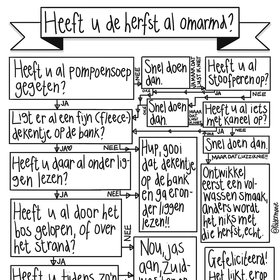 Heeft u de herfst al omarmd?
Heeft u al pompoensoep
gegeten?
NEE
Snel doen
dan.
JA MAAR DAT
LUST IK NIET
Heeft u al
stoofperen op?
JA
JA
NEE
Ligt er al een fijn (fleece-)
dekentje op de bank?
Snel doen
dan.
Heeft u al iets
met kaneel op?
JA
NEE
JA
NEE
Heeft u daar al onder lig
gen lezen?
Hup, gooi
dat dekentje
op de bank
en ga eron-
der liggen
lezen!!
Snel doen dan.
MAAR DAT LUST IK NIET
JA
NEE
Ontwikkel
eerst een vol-
wassen smaak,
anders wordt
het niks met
die herfst, echt.
Heeft u al door het
bos gelopen, of over
het strand?
JA
NEE
Nou, jas
aan, Zuid-
Gefeliciteerd!
Heeft u tijdens zo'n